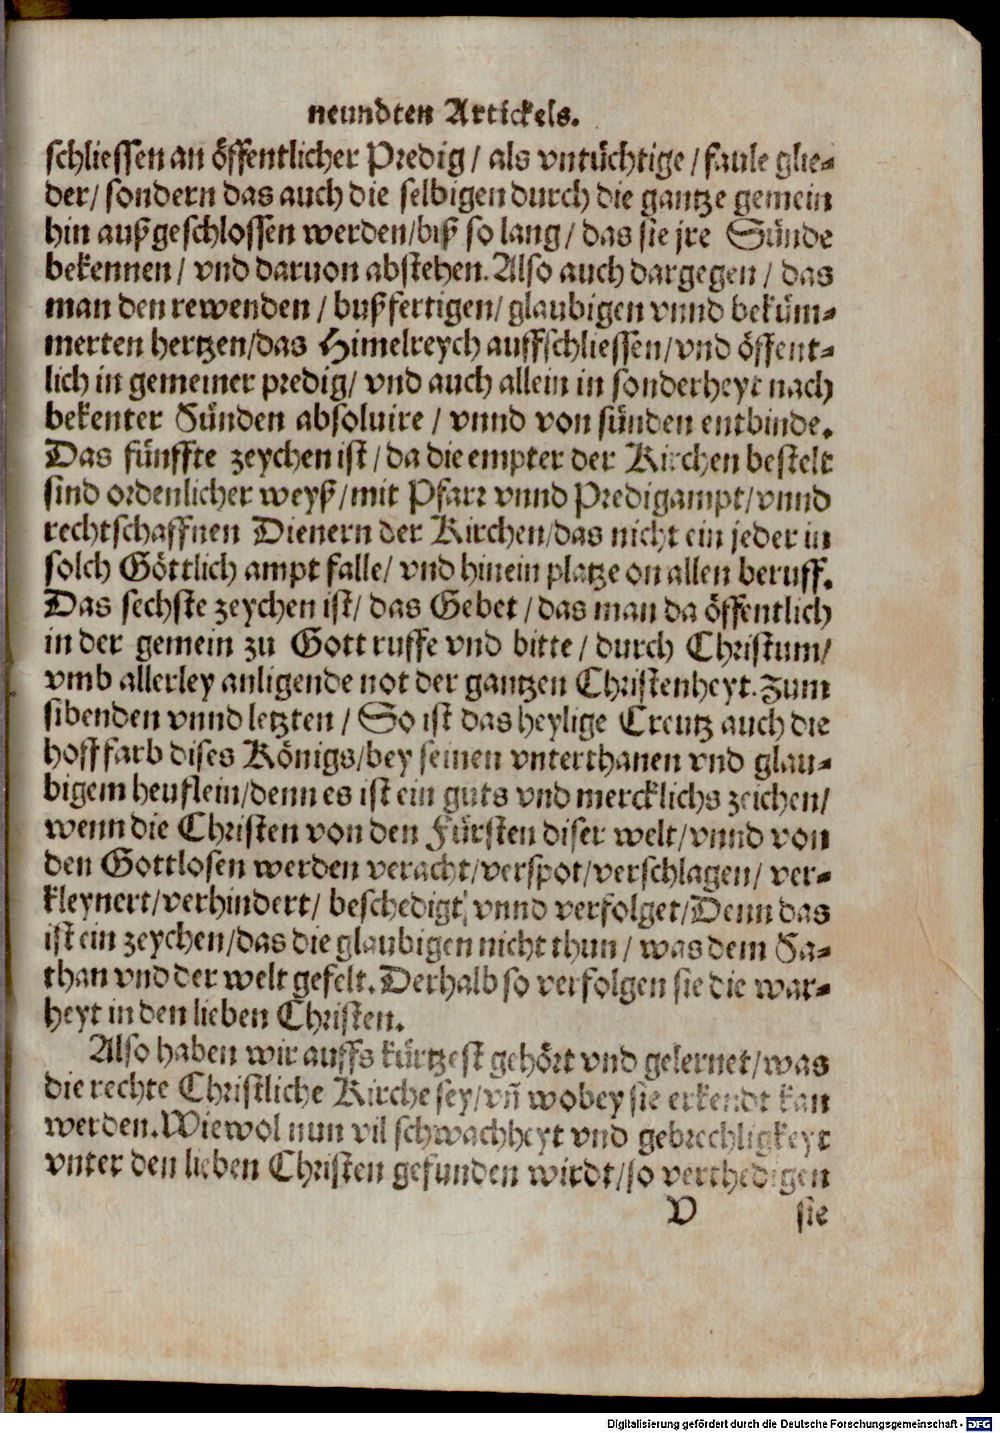 neundten Artickels.
schliessen an öffentlicher Predig / als vntüchtige / faule glie-
der/ sondern das auch die selbigen durch die gantze gemein
hin außgeschlossen werden/biß so lang / das sie jre Sünde
bekennen / vnd daruon abstehen. Also auch dargegen / das
man den rewenden / bußfertigen/ glaubigen vnnd beküm-
merten hertzen/das Himelreych auffschliessen/vnd öffent-
lich in gemeiner predig/ vnd auch allein in sonderheyt nach
bekenter Sünden absoluire / vnnd von sünden entbinde.
Das fünffte zeychen ist / da die empter der Kirchen bestelt
sind ordenlicher weyß/mit Pfarr vnnd Predigampt/vnnd
rechtschaffnen Dienern der Kirchen/das nicht ein jeder in
solch Göttlich ampt falle/ vnd hinein platze on allen beruff.
Das sechste zeychen ist/ das Gebet / das man da öffentlich
in der gemein zu Gott ruffe vnd bitte / durch Christum/
vmb allerley anligende not der gantzen Christenheyt. Zum
sibenden vnnd letzten / So ist das heylige Creutz auch die
hofffarb dises Königs/bey seinen vnterthanen vnd glau-
bigem heuflein/denn es ist ein guts vnd mercklichs zeichen/
wenn die Christen von den Fürsten diser welt/vnnd von
den Gottlosen werden veracht/verspot/verschlagen/ ver-
kleynert/verhindert/ beschedigt/ vnnd verfolget/Denn das
ist ein zeychen/das die glaubigen nicht thun / was dem Sa-
than vnd der welt gefelt. Derhalb so verfolgen sie die war-
heyt in den lieben Christen.
Also haben wir auffs kürtzest gehört vnd gelernet/was
die rechte Christliche Kirche sey/vn̄ wobey sie erkendt kan
werden. Wiewol nun vil schwachheyt vnd gebrechligkeyt
vnter den lieben Christen gefunden wirdt/so verthedigen
V sie
Digitalisierung gefördert durch die Deutsche Forschungsgemeinschaft - DFG